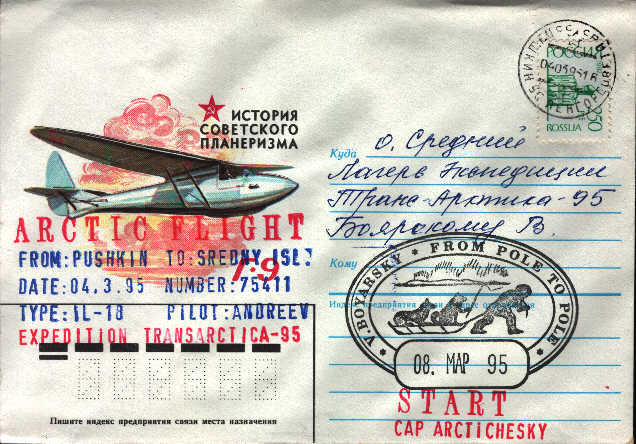 РОССИЯ
0403951
250
ROSSIJA
ИСТОРИЯ
СОВЕТСКОГО
ПЛАНЕРИЗМА
Куда о. Средний
Лагерь Экспедиции
Транс-Арктика-95
Боярскому В.
Кому
ARCTIC FLIGHT
FROM:PUSHKIN TO:SREDNY ISL
1:9
DATE:04.3.95 NUMBER:75411
TYPE:IL-18 PILOT:ANDREEV
EXPEDITION TRANSARCTICA-95
Индекс предприятия связи
V.BOYARSKY * FROM POLE TO POLE *
08. МАР 95
Пишите индекс предприятия связи места назначения
START
CAP ARCTICHESKY